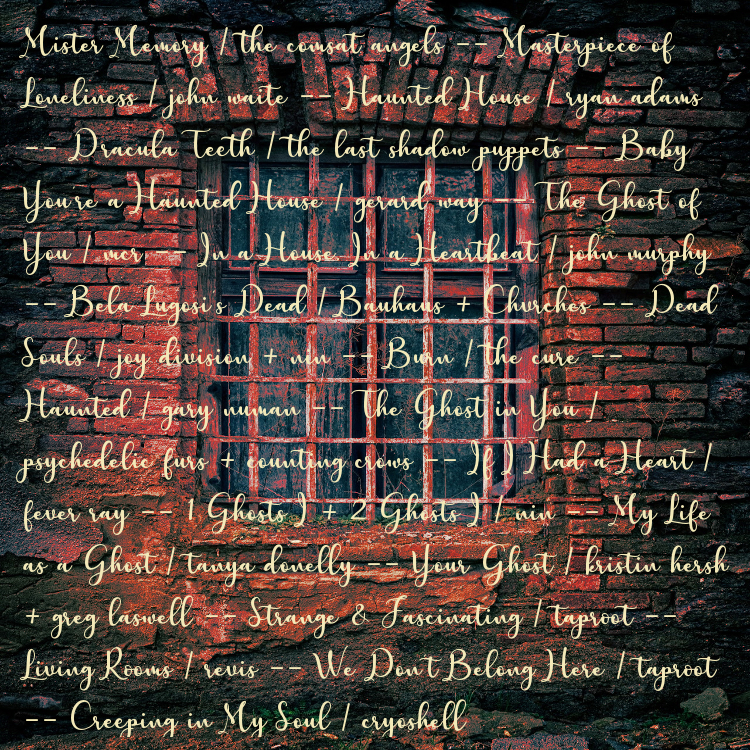 Mister Memory / the comsat angels -- Masterpiece of
Loneliness / john waite -- Haunted House / ryan adams
-- Dracula Teeth / the last shadow puppets -- Baby
You're a Haunted House / gerard way -- The Ghost of
You / mcr -- In a House, In a Heartbeat / john murphy
-- Bela Lugosi's Dead / Bauhaus + Chvrches -- Dead
Souls / joy division + nin -- Burn / the cure --
Haunted / gary numan -- The Ghost in You /
psychedelic furs + counting crows -- If I Had a Heart /
fever ray -- 1 Ghosts I + 2 Ghosts I / nin -- My Life
as a Ghost / tanya donelly -- Your Ghost / kristin hersh
+ greg laswell -- Strange & Fascinating / taproot --
Living Rooms / revis -- We Don't Belong Here / taproot
-- Creeping in My Soul / cryoshell